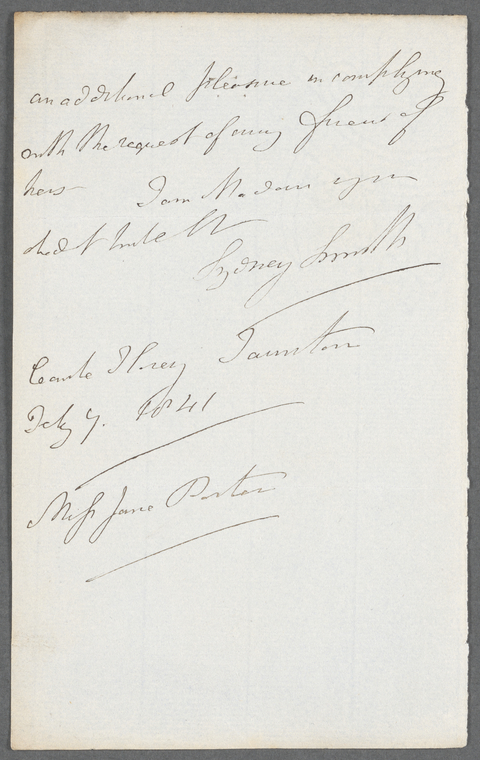 an additional pleasure in complying
with the request of any friend of
hers – I am Madam your
obedt humble St
Sydney Smith
Combe Florey Taunton
July 7. 1841
Miss Jane Porter